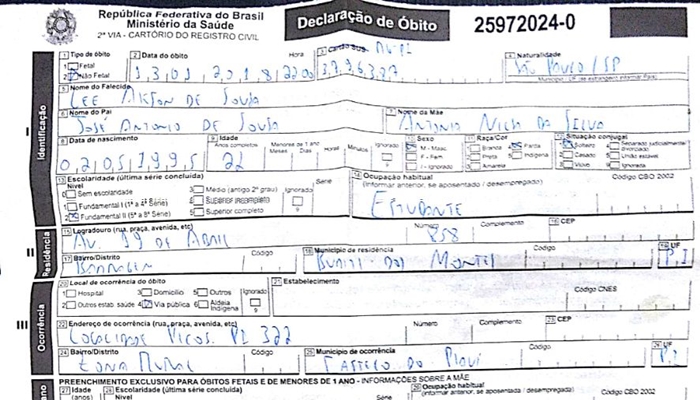 República Federativa do Brasil
Ministério da Saúde
2ª VIA - CARTÓRIO DO REGISTRO CIVIL
Declaração de Óbito
25972024-0
I Identificação
1 Tipo de óbito
1 Fetal
2 Não Fetal
2 Data do óbito Hora
1 3 0 1 2 0 1 8 22 00
3 Cartão SUS
4 Naturalidade
São Paulo / SP
Município / UF (se estrangeiro informar País)
5 Nome do Falecido
LEE DE SOUSA
6 Nome do Pai
JOSÉ ANTONIO DE SOUSA
7 Nome da Mãe
ANTONIA DA SILVA
8 Data de nascimento
0 2 0 5 1 9 9 5
9 Idade
Anos completos Menores de 1 ano Meses Dias Horas Minutos Ignorado
22
10 Sexo
M - Masc.
F - Fem.
I - Ignorado
11 Raça/Cor
Branca
Preta
Amarela
Parda
Indígena
12 Situação conjugal
Solteiro
Casado
Viúvo
Separado judicialmente/divorciado
União estável
Ignorada
13 Escolaridade (última série concluída)
Nível Série
0 Sem escolaridade
1 Fundamental I (1ª a 4ª Série)
2 Fundamental II (5ª a 8ª Série)
3 Médio (antigo 2º grau)
4 Superior incompleto
5 Superior completo
Ignorado
9
14 Ocupação habitual Código CBO 2002
(informar anterior, se aposentado / desempregado)
ESTUDANTE
II Residência
15 Logradouro (rua, praça, avenida, etc) Número Complemento 16 CEP
AV. 19 DE ABRIL 858
17 Bairro/Distrito Código
18 Município de residência Código
BURITI DOS MONTES
19 UF
P I
III Ocorrência
20 Local de ocorrência do óbito
1 Hospital
2 Outros estab. saúde
3 Domicílio
4 Via pública
5 Outros
6 Aldeia Indígena
Ignorado
9
21 Estabelecimento Código CNES
22 Endereço de ocorrência (rua, praça, avenida, etc) Número Complemento 23 CEP
PI 322
24 Bairro/Distrito Código
ZONA RURAL
25 Município de ocorrência Código
CASTELO DO PIAUÍ
26 UF
P I
PREENCHIMENTO EXCLUSIVO PARA ÓBITOS FETAIS E DE MENORES DE 1 ANO - INFORMAÇÕES SOBRE A MÃE
27 Idade (anos)
28 Escolaridade (última série concluída)
Nível Série
Ignorado
29 Ocupação habitual Código CBO 2002
(informar anterior, se aposentada / desempregada)